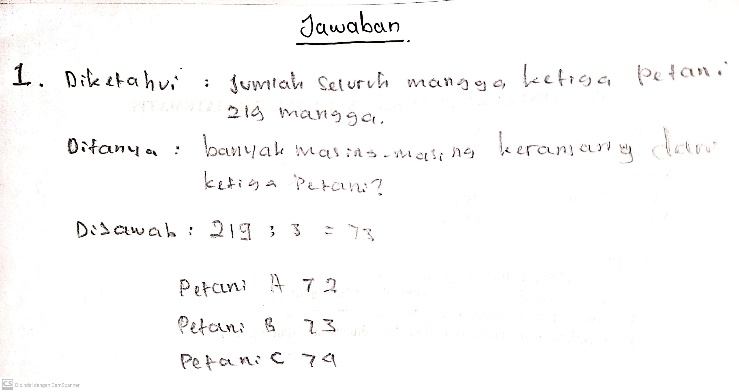 Jawaban
1. Diketahui : Jumlah Seluruh mangga ketiga Petani
219 mangga.
Ditanya : banyak masing-masing keranjang dari
ketiga Petani?
Dijawab : 219 : 3 = 73
Petani A 72
Petani B 73
Petani C 74
CS Dipindai dengan CamScanner